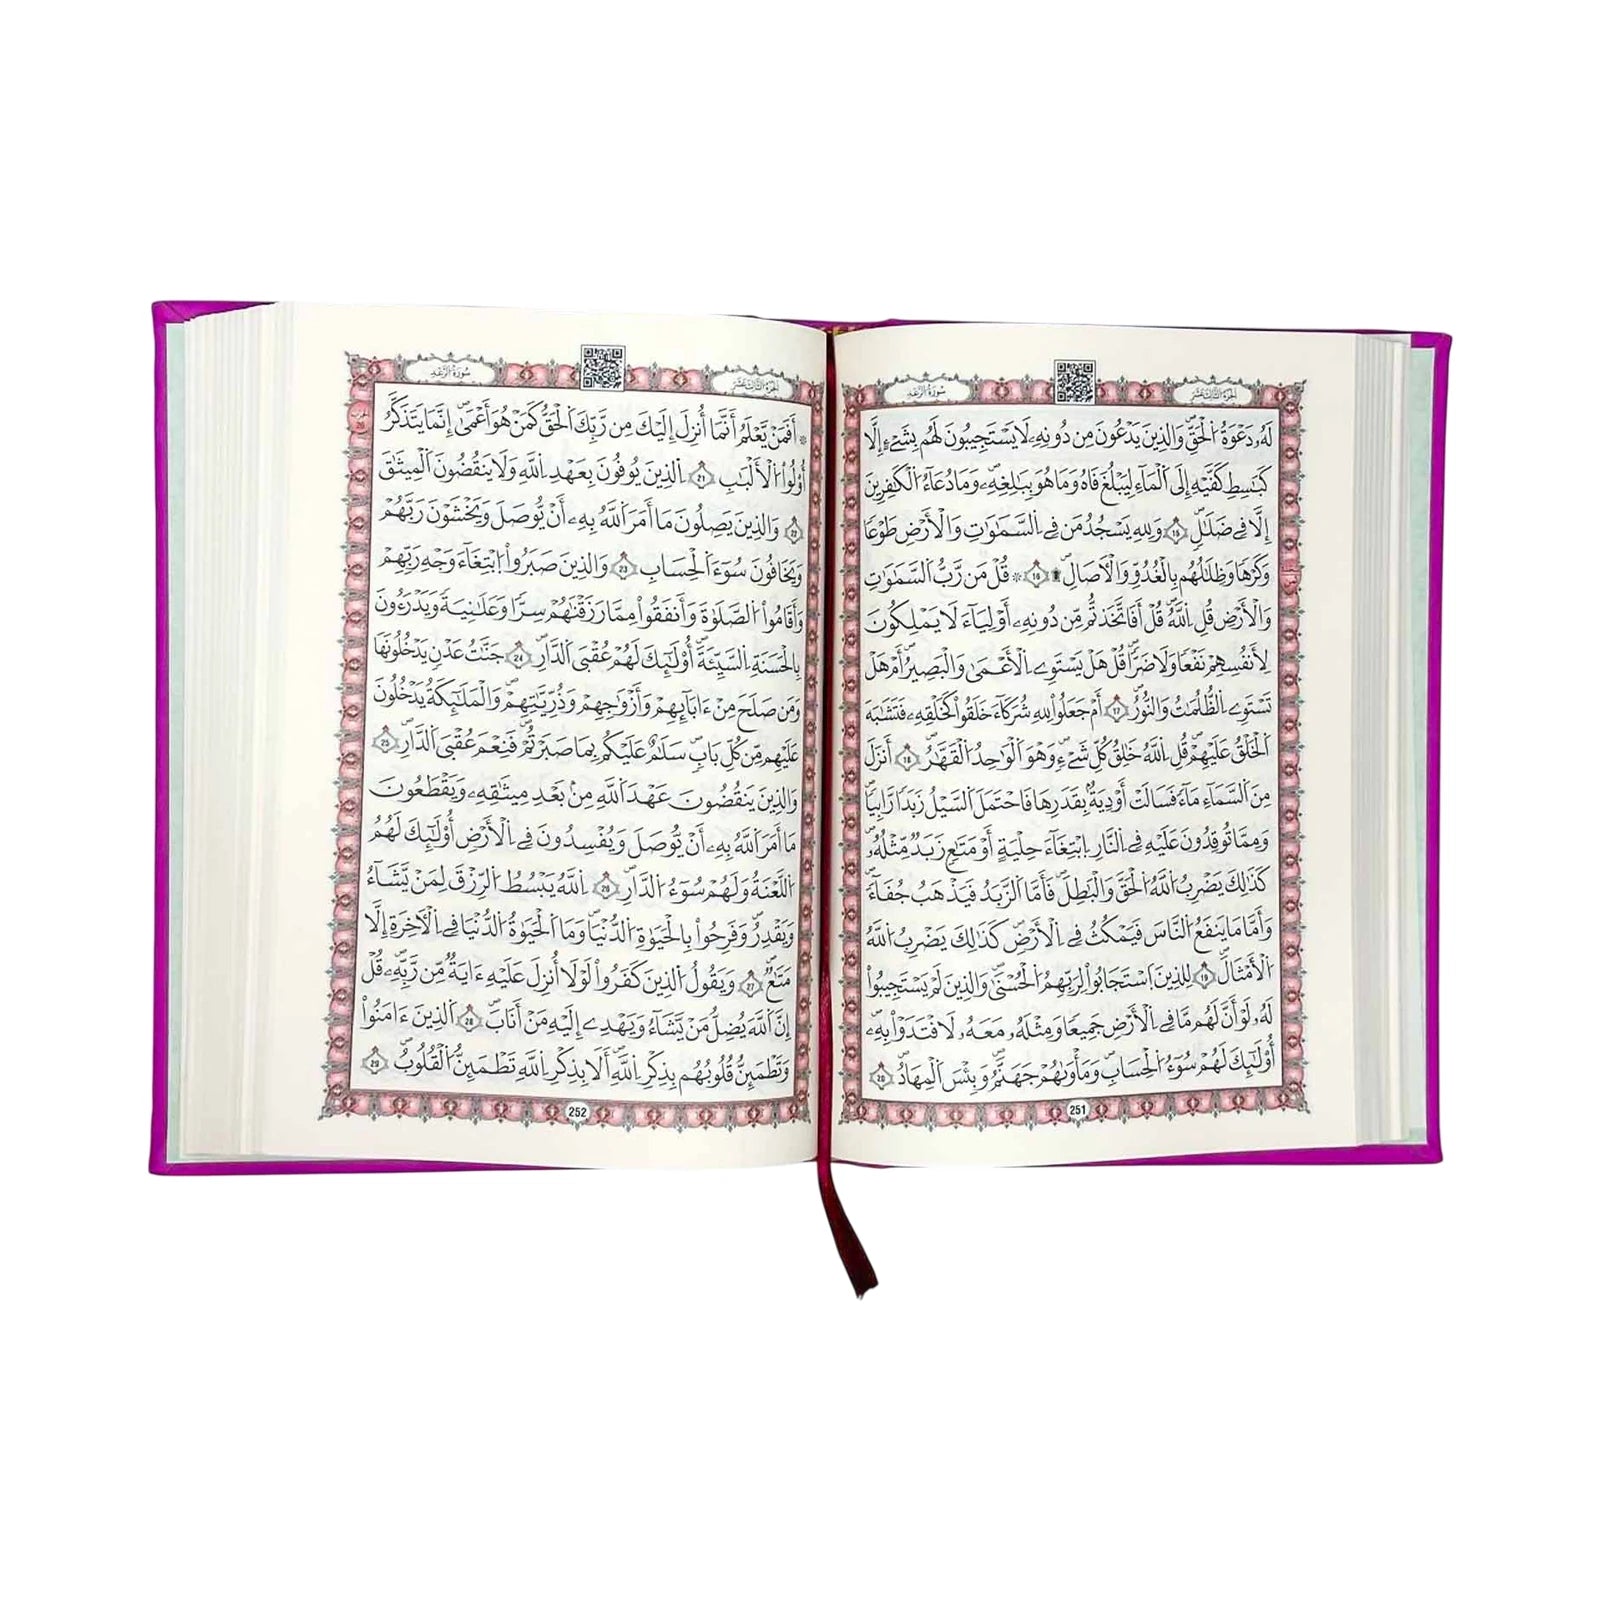 الجُزْءُ الثَّالِثَ عَشَرَ سُورَةُ الرَّعْدِ
لَهُۥ دَعْوَةُ اُ۬لْحَقِّ وَالذِينَ يَدْعُونَ مِن دُونِهِۦ لَا يَسْتَجِيبُونَ لَهُم بِشَےْءٍ اِلَّا
كَبَٰسِطِ كَفَّيْهِ إِلَى اَ۬لْمَآءِ لِيَبْلُغَ فَاهُ وَمَا هُوَ بِبَٰلِغِهِۦ وَمَا دُعَآءُ اُ۬لْكٰفِرِينَ
إِلَّا فِے ضَلَٰلٖ 15 وَلِلهِ يَسْجُدُ مَن فِے اِ۬لسَّمَٰوَٰتِ وَالَارْضِ طَوْعاٗ
وَكَرْهاٗ وَظِلَٰلُهُم بِالْغُدُوِّ وَالَاصَالِ 16 قُلْ مَن رَّبُّ اُ۬لسَّمَٰوَٰتِ
وَالَارْضِ قُلِ اِ۬للَّهُ قُلَ اَفَاتَّخَذتُّم مِّن دُونِهِۦٓ أَوْلِيَآءَ لَا يَمْلِكُونَ
لِأَنفُسِهِمْ نَفْعاٗ وَلَا ضَرّاٗ قُلْ هَلْ يَسْتَوِے اِ۬لَاعْمَىٰ وَالْبَصِيرُ أَمْ هَلْ
تَسْتَوِے اِ۬لظُّلُمَٰتُ وَالنُّورُ 17 أَمْ جَعَلُواْ لِلهِ شُرَكَآءَ خَلَقُواْ كَخَلْقِهِۦ فَتَشَٰبَهَ
اَ۬لْخَلْقُ عَلَيْهِمْ قُلِ اِ۬للَّهُ خَٰلِقُ كُلِّ شَےْءٖ وَهُوَ اَ۬لْوَٰحِدُ اُ۬لْقَهَّٰرُ 18 أَنزَلَ
مِنَ اَ۬لسَّمَآءِ مَآءٗ فَسَالَتَ اَوْدِيَةُۢ بِقَدَرِهَا فَاحْتَمَلَ اَ۬لسَّيْلُ زَبَداٗ رَّابِياٗ
وَمِمَّا تُوقِدُونَ عَلَيْهِ فِے اِ۬لنَّارِ اِ۪بْتِغَآءَ حِلْيَةٍ اَوْ مَتَٰعٖ زَبَدٞ مِّثْلُهُۥ
كَذَٰلِكَ يَضْرِبُ اُ۬للَّهُ اُ۬لْحَقَّ وَالْبَٰطِلَ فَأَمَّا اَ۬لزَّبَدُ فَيَذْهَبُ جُفَآءٗ
وَأَمَّا مَا يَنفَعُ اُ۬لنَّاسَ فَيَمْكُثُ فِے اِ۬لَارْضِ كَذَٰلِكَ يَضْرِبُ اُ۬للَّهُ
اُ۬لَامْثَالَ 19 لِلذِينَ اَ۪سْتَجَابُواْ لِرَبِّهِمُ اُ۬لْحُسْنَىٰ وَالذِينَ لَمْ يَسْتَجِيبُواْ
لَهُۥ لَوَ اَنَّ لَهُم مَّا فِے اِ۬لَارْضِ جَمِيعاٗ وَمِثْلَهُۥ مَعَهُۥ لَافْتَدَوْاْ بِهِۦٓ
أُوْلَٰٓئِكَ لَهُمْ سُوٓءُ اُ۬لْحِسَابِ وَمَأْوَىٰهُمْ جَهَنَّمُ وَبِيسَ اَ۬لْمِهَادُ 20
251
الجُزْءُ الثَّالِثَ عَشَرَ سُورَةُ الرَّعْدِ
أَفَمَنْ يَّعْلَمُ أَنَّمَآ أُنزِلَ إِلَيْكَ مِن رَّبِّكَ اَ۬لْحَقُّ كَمَنْ هُوَ أَعْمَىٰٓ إِنَّمَا يَتَذَكَّرُ
أُوْلُواْ اُ۬لَالْبَٰبِ 21 اِ۬لذِينَ يُوفُونَ بِعَهْدِ اِ۬للَّهِ وَلَا يَنقُضُونَ اَ۬لْمِيثَٰقَ
22 وَالذِينَ يَصِلُونَ مَآ أَمَرَ اَ۬للَّهُ بِهِۦٓ أَنْ يُّوصَلَ وَيَخْشَوْنَ رَبَّهُمْ
وَيَخَافُونَ سُوٓءَ اَ۬لْحِسَابِ 23 وَالذِينَ صَبَرُواْ اُ۪بْتِغَآءَ وَجْهِ رَبِّهِمْ
وَأَقَامُواْ اُ۬لصَّلَوٰةَ وَأَنفَقُواْ مِمَّا رَزَقْنَٰهُمْ سِرّاٗ وَعَلَٰنِيَةٗ وَيَدْرَءُونَ
بِالْحَسَنَةِ اِ۬لسَّيِّئَةَ أُوْلَٰٓئِكَ لَهُمْ عُقْبَى اَ۬لدَّارِ 24 جَنَّٰتُ عَدْنٖ يَدْخُلُونَهَا
وَمَن صَلَحَ مِنَ اٰبَآئِهِمْ وَأَزْوَٰجِهِمْ وَذُرِّيَّٰتِهِمْ وَالْمَلَٰٓئِكَةُ يَدْخُلُونَ
عَلَيْهِم مِّن كُلِّ بَابٖ سَلَٰمٌ عَلَيْكُم بِمَا صَبَرْتُمْ فَنِعْمَ عُقْبَى اَ۬لدَّارِ 25
وَالذِينَ يَنقُضُونَ عَهْدَ اَ۬للَّهِ مِنۢ بَعْدِ مِيثَٰقِهِۦ وَيَقْطَعُونَ
مَآ أَمَرَ اَ۬للَّهُ بِهِۦٓ أَنْ يُّوصَلَ وَيُفْسِدُونَ فِے اِ۬لَارْضِ أُوْلَٰٓئِكَ لَهُمُ
اُ۬للَّعْنَةُ وَلَهُمْ سُوٓءُ اُ۬لدَّارِ 26 اِ۬للَّهُ يَبْسُطُ اُ۬لرِّزْقَ لِمَنْ يَّشَآءُ
وَيَقْدِرُ وَفَرِحُواْ بِالْحَيَوٰةِ اِ۬لدُّنْيَا وَمَا اَ۬لْحَيَوٰةُ اُ۬لدُّنْيَا فِے اِ۬لَاخِرَةِ إِلَّا
مَتَٰعٞ 27 وَيَقُولُ اُ۬لذِينَ كَفَرُواْ لَوْلَآ أُنزِلَ عَلَيْهِ ءَايَةٞ مِّن رَّبِّهِۦ قُلِ
اِنَّ اَ۬للَّهَ يُضِلُّ مَنْ يَّشَآءُ وَيَهْدِےٓ إِلَيْهِ مَنَ اَنَابَ 28 اَ۬لذِينَ ءَامَنُواْ
وَتَطْمَئِنُّ قُلُوبُهُم بِذِكْرِ اِ۬للَّهِ أَلَا بِذِكْرِ اِ۬للَّهِ تَطْمَئِنُّ اُ۬لْقُلُوبُ 29
252